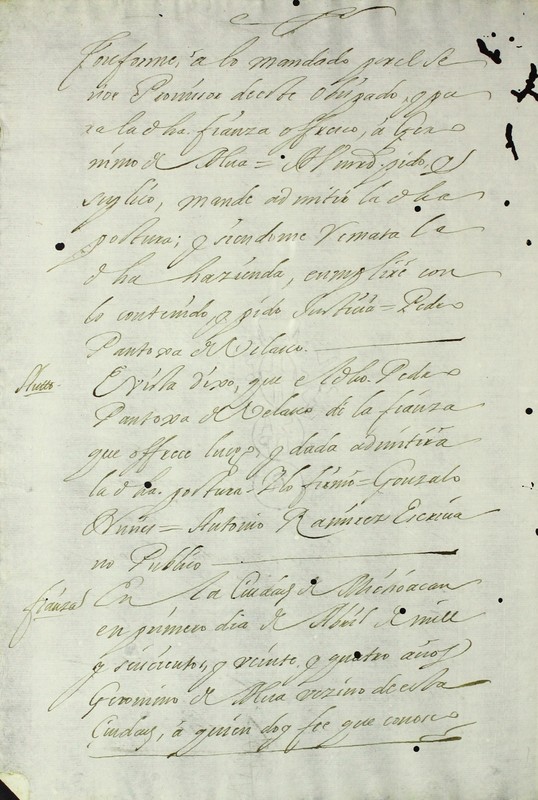 Conforme, a lo mandado por el Se
ñor Provisor deeste Obispado, y pa
ra la dha. fianza offresco, à Gero
nimo de Alua = A Vmrd. pido, y
suplico, mande admitir la dha
postura; y siendome Remata la
dha hazienda, cumplirè con
lo contenido, y pido Justicia = Pedro
Pantoxa de Velasco.
Auto.
E vista dixo, que el dho. Pedro
Pantoxa de Velasco dè la fianza
que offrece luego, y dada admitirà
la dha. postura. Y lo firmò = Gonzalo
Nuñes = Antonio Ramirez Escriua
no Publico
fianza
En la Ciudad de Michoacan
en primero dia de Abril de mill
y seiscientos, y veinte, y quatro años
Geronimo de Alua vezino de esta
Ciudad, à quien doy fee que conosco